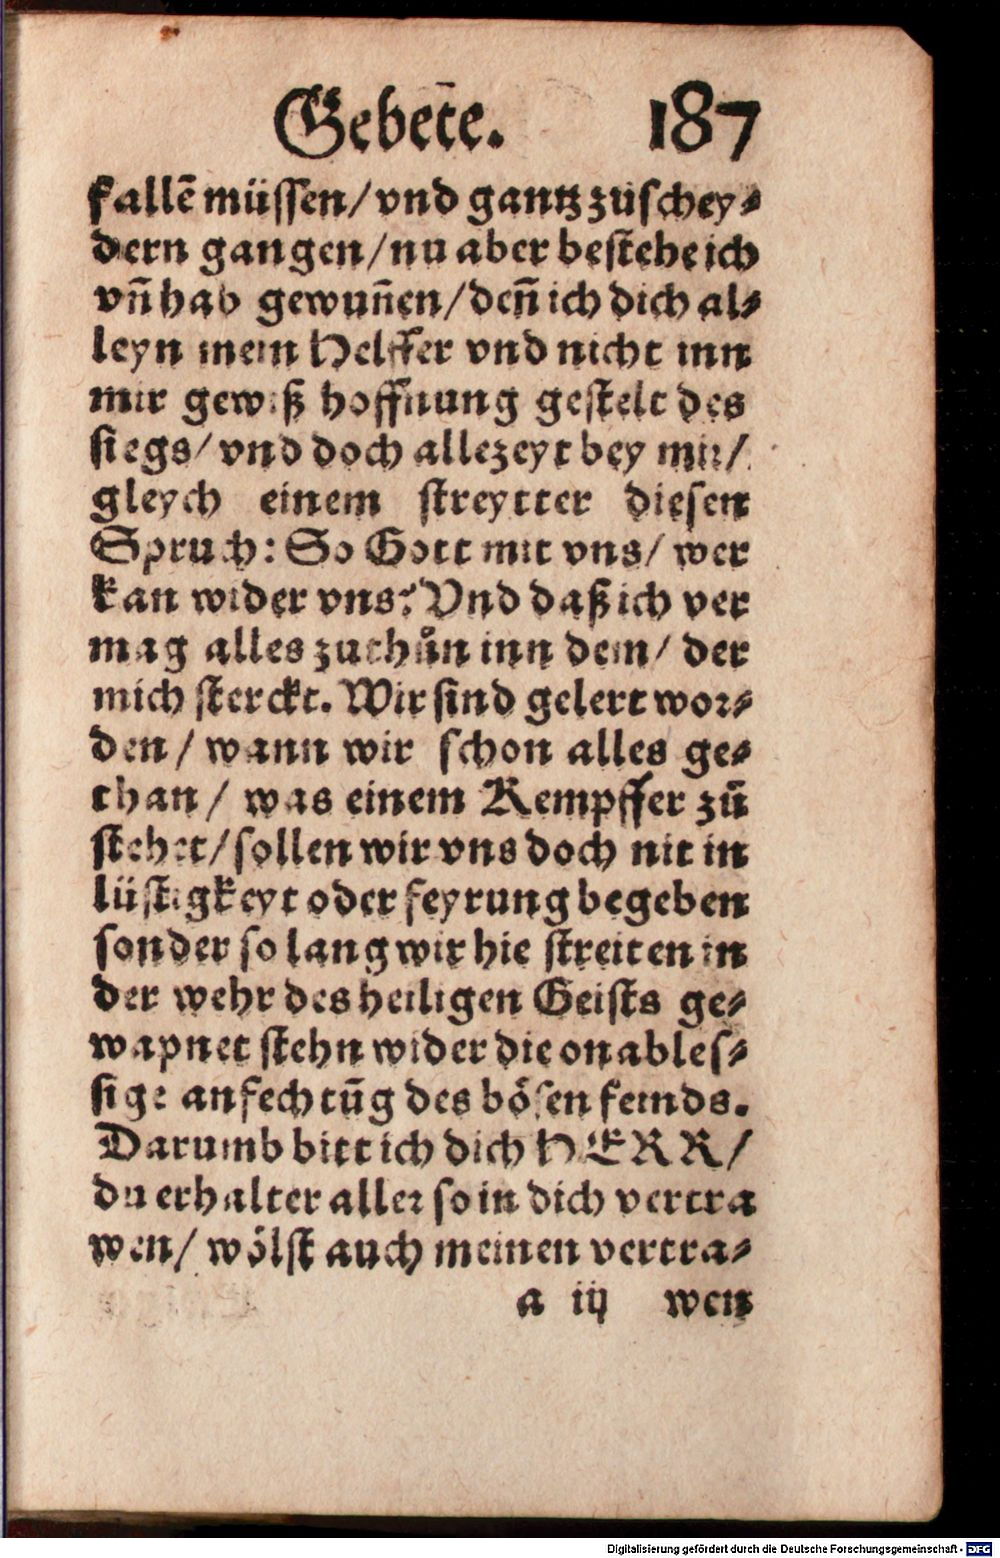 Gebete. 187
fallē müssen/ vnd gantz zuͦschey⸗
dern gangen/ nu aber bestehe ich
vn̄ hab gewun̄en/ den̄ ich dich al⸗
leyn mein Helffer vnd nicht inn
mir gewiß hoffnung gestelt des
siegs/ vnd doch allezeyt bey mir/
gleych einem streytter diesen
Spruch: So Gott mit vns/ wer
kan wider vns? Vnd daß ich ver
mag alles zuthuͦn inn dem/ der
mich sterckt. Wir sind gelert wor⸗
den/ wann wir schon alles ge⸗
than/ was einem Kempffer zuͦ
stehet/ sollen wir vns doch nit in
lüstigkeyt oder feyrung begeben
sonder so lang wir hie streiten in
der wehr des heiligen Geists ge⸗
wapnet stehn wider die onables⸗
sige anfechtūg des bösen feinds.
Darumb bitt ich dich HERR/
du erhalter aller so in dich vertra
wen/ wölst auch meinen vertra⸗
a iij wen
Digitalisierung gefördert durch die Deutsche Forschungsgemeinschaft - DFG